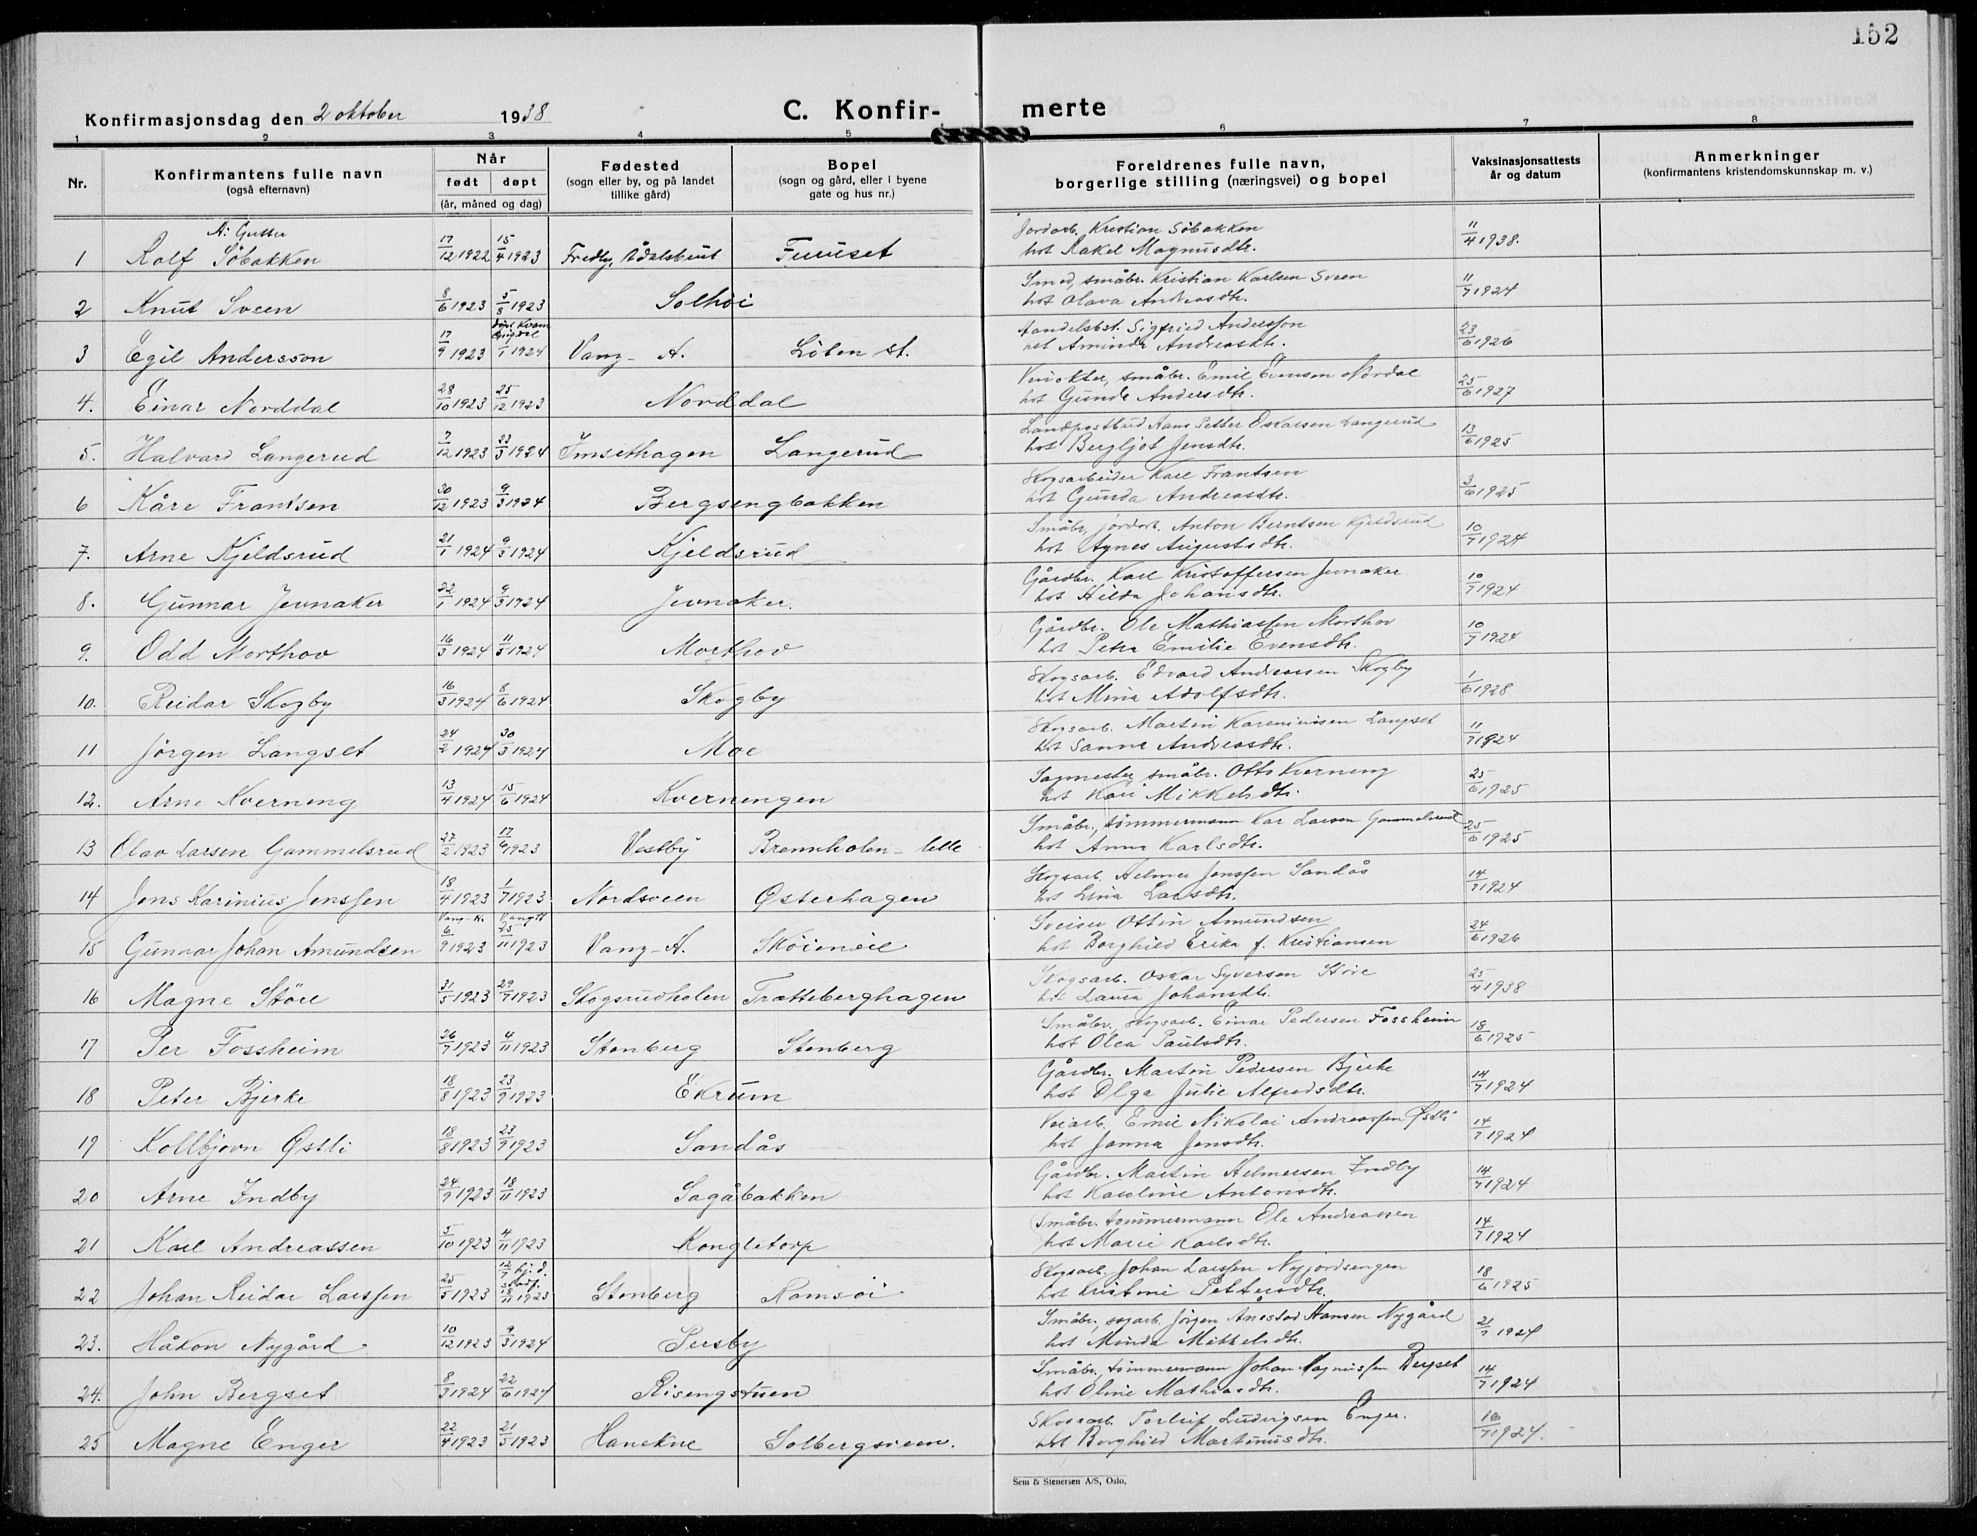 152
Konfirmasjonsdag den 2 oktober 1938
C. Konfir- merte
1 2 3 4 5 6 7 8
Nr.
Konfirmantens fulle navn
(også efternavn)
Når
født døpt
(år, måned og dag)
Fødested
(sogn eller by, og på landet
tillike gård)
Bopel
(sogn og gård, eller i byene
gate og hus nr.)
Foreldrenes fulle navn,
borgerlige stilling (næringsvei) og bopel
Vaksinasjonsattests
år og datum
Anmerkninger
(konfirmantens kristendomskunnskap m. v.)
A: Gutter
1 Rolf Söbakken 17/12 1922 15/4 1923 Furuset
Jordarb. Kristian Söbakken
hot Rakel Magnusdtr. 11/4 1938.
2 Knut Sveen 8/6 1923 5/8 1923 Solhöi
Smed, småbr. Kristian Karlsen Sveen
hot Olava Andreasdtr. 11/7 1924
3 Egil Andersson 17/9 1923 1/1 1924 Vang - H. Löten st.
Handelsbst. Sigfried Andersson
hot Aminda Andreasdtr. 23/6 1926
4. Einar Norddal 28/10 1923 25/12 1923 Norddal
småbr. Emil Evensen Nordal
hot Gunda Andersdtr. 25/6 1927
5. Halvard Langerud 7/12 1923 23/3 1924 Imsethagen Langerud
Landpostbud Hans Petter Oskarsen Langerud
hot Bergljot Jensdtr. 13/6 1925
6 Kåre Frantsen 30/12 1923 9/3 1924 Bergsengbakken
Skogsarbeider Karl Frantsen
hot Gunda Andreasdtr. 3/6 1925
7. Arne Kjeldsrud 21/1 1924 9/3 1924 Kjeldsrud
Småbr, jordarb. Anton Berntsen Kjeldsrud
hot Agnes Augustsdtr. 10/7 1924
8. Gunnar Jevnaker 22/1 1924 9/3 1924 Jevnaker.
Gårdbr. Karl Kristoffersen Jevnaker
hot Hilda Johansdtr. 10/7 1924
9. Odd Morthov 16/3 1924 11/5 1924 Morthov
Gårdbr. Ole Mathiassen Morthov
hot Petra Emilie Evensdtr. 10/7 1924
10. Reidar Skogby 16/3 1924 8/6 1924 Skogby
Skogsarb. Edvard Andreassen Skogby
hot Mina Adolfsdtr. 1/6 1928
11 Jörgen Langset 24/2 1924 30/3 1924 Moe
Skogsarb. Martin Kareniussen Langset
hot Sanna Andreasdtr. 11/7 1924
12. Arne Kverneng 13/4 1924 15/6 1924 Kverningen
Sagmester småbr. Otto Kverneng
hot Kari Mikkelsdtr. 25/6 1925
13 Olav Larsen Gammelsrud 27/2 1923 17/6 1923 Vestby Brennholen - lille
Småbr, tömmermann Kar Larsen Gammelsrud
hot Anna Karlsdtr. 25/6 1925
14 Jens Karinius Jenssen 18/4 1923 1/7 1923 Nordsveen Østerhagen
Skogsarb. Helmer Jenssen Sandås
hot Lina Larsdtr. 14/7 1924
15 Gunnar Johan Amundsen 6/9 1923 25/11 1923 Vang - H. Sköieneie
Sveiser Ottin Amundsen
hot Borghild Erika f. Kristiansen 24/6 1926
16 Magne Störe 31/5 1923 29/7 1923 Skogsrudholen Tratteberghagen
Skogsarb. Oskar Syversen Störe
hot Laura Johansdtr. 25/4 1938
17 Per Fossheim 26/7 1923 4/11 1923 Stenberg Stenberg
Småbr, skogsarb. Einar Pedersen Fossheim
hot Olea Paulsdtr. 18/6 1925
18 Peter Bjerke 18/8 1923 23/9 1923 Ekrum
Gårdbr. Martin Pedersen Bjerke
hot Olga Julie Alfredsdtr. 14/7 1924
19 Kolbjørn Østli 18/8 1923 23/9 1923 Sandås
Veiarb. Emil Nikolai Andreassen Østli
hot Janna Jensdtr. 14/7 1924
20 Arne Indby 24/9 1923 18/11 1923 Sagåbakken
Gårdbr. Martin Helmersen Indby
hot Karoline Antonsdtr. 14/7 1924
21 Karl Andreassen 5/10 1923 4/11 1923 Kongletorp
Småbr. tömmermann Ole Andreassen
hot Marie Karlsdtr. 14/7 1924
22 Johan Reidar Larssen 25/5 1923 12/7 hj. d. stadf. 18/11 1923 Stenberg Ramsöi
Skogsarb. Johan Larssen Nyjordsengen
hot Kristine Pettersdtr. 18/6 1925
23. Håkon Nygård 10/12 1923 9/3 1924 Persby
Småbr, Jörgen Hansen Nygård
hot Minda Mikkelsdtr. 21/7 1924
24. John Bergset 8/3 1924 22/6 1924 Risengstuen
Småbr, tömmermann Johan Magnussen Bergset
hot Oline Mathiasdtr. 14/7 1924
25 Magne Enger 22/4 1923 21/5 1923 Hanekne Solbergsveen.
Skogsarb. Torleif Ludvigsen Enger.
hot Borghild Martinusdtr. 16/7 1924.
Sem & Stenersen A/S, Oslo.